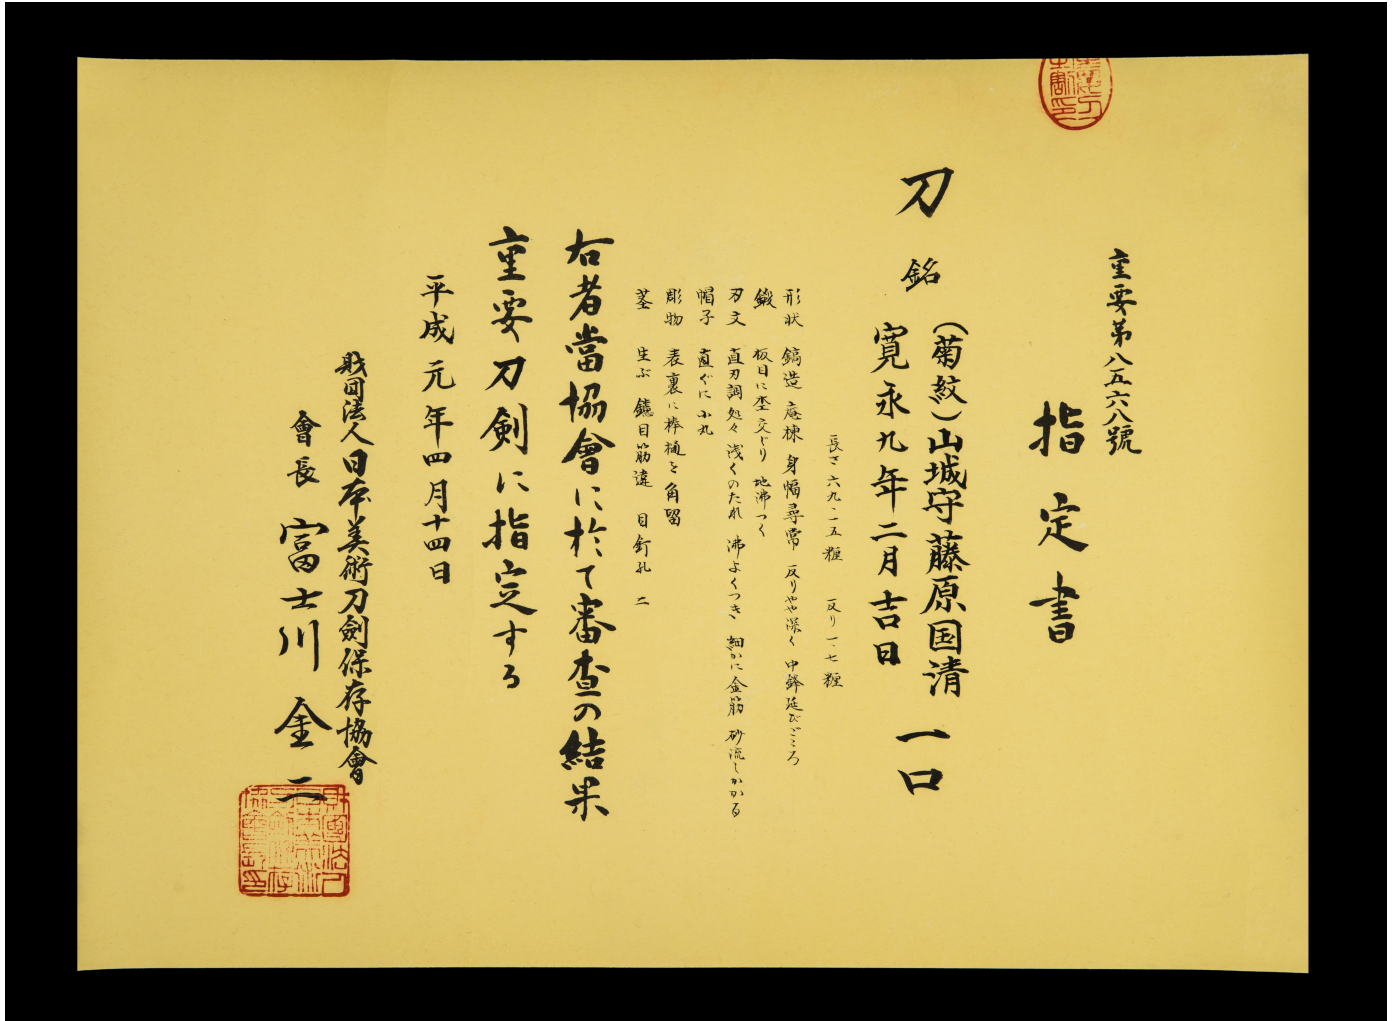 重要第八五六八號
指定書
刀 銘 (菊紋)山城守藤原国清 一口
寛永九年二月吉日
長さ 六九・一五糎 反り 一・七糎
形状 鎬造 庵棟 身幅尋常 反りやや深く 中鋒延びごころ
鍛 板目に杢交じり 地沸つく
刃文 直刃調 処々浅くのたれ 沸よくつき 細かに金筋 砂流しかかる
帽子 直ぐに小丸
彫物 表裏に棒樋を角留
茎 生ぶ 鑢目筋違 目釘孔 二
右者當協會に於て審査の結果
重要刀剣に指定する
平成元年四月十四日
財団法人日本美術刀劍保存協會
會長 富士川金二